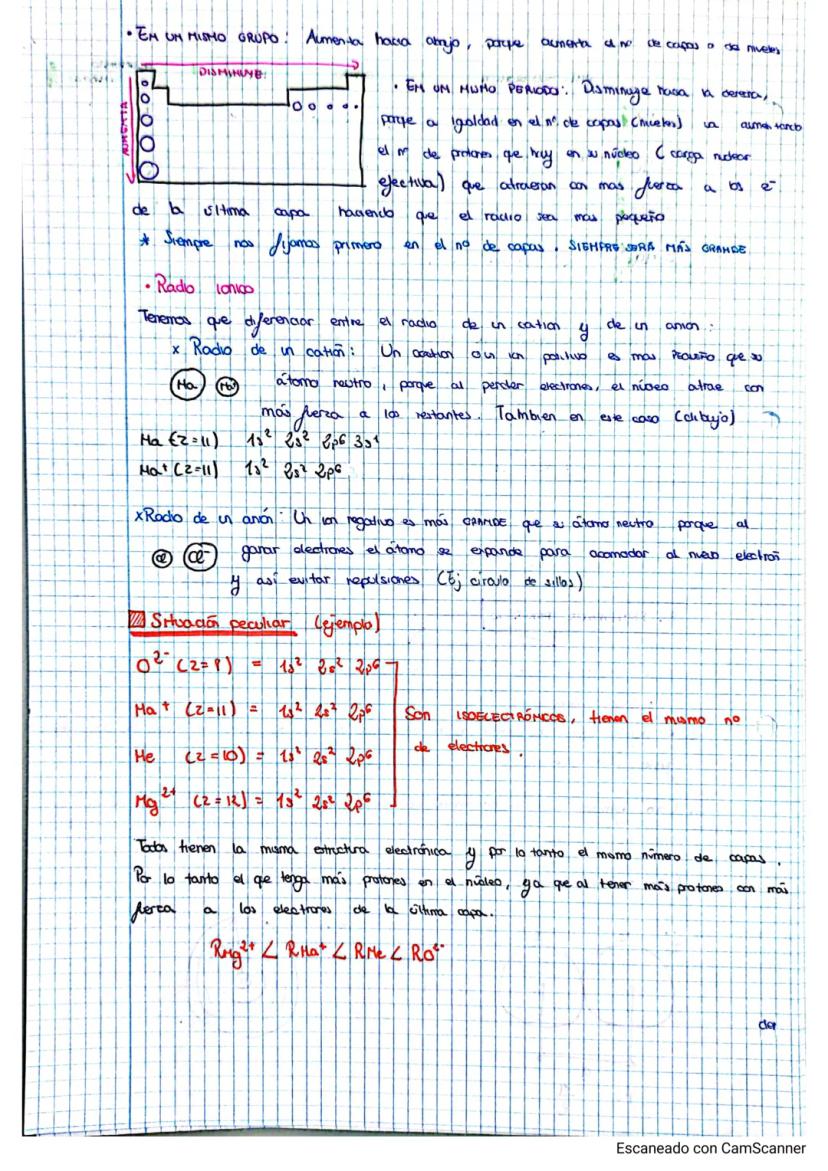 · EN UN MISMO GRUPO: Aumenta hacia abajo, porque aumenta el nº de capas o de niveles
DISMINUYE
AUMENTA
· EN UN MISMO PERIODO: Disminuye hacia la derecha,
porque a igualdad en el nº de capas (niveles) va aumentando
el nº de protones que hay en su núcleo (carga nuclear
efectiva) que atraeran con mas fuerza a los e⁻
de la última capa haciendo que el radio sea mas pequeño
* Siempre nos fijamos primero en el nº de capas. SIEMPRE SERA MÁS GRANDE
· Radio ionico
Tenemos que diferenciar entre el radio de un cation y de un anion:
x Radio de un catión: Un cation o un ion positivo es mas PEQUEÑO que su
Na Na⁺ átomo neutro, porque al perder electrones, el núcleo atrae con
más fuerza a los restantes. Tambien en este caso (dibujo)
Na (Z=11) 1s² 2s² 2p6 3s1
Na⁺ (Z=11) 1s² 2s² 2p6
x Radio de un anión: Un ion negativo es más GRANDE que su átomo neutro porque al
Cl Cl⁻ ganar electrones el átomo se expande para acomodar al nuevo electrón
y así evitar repulsiones (Ej círculo de sillas)
Situación peculiar (ejemplo)
O²⁻ (Z=8) = 1s² 2s² 2p6
Na⁺ (Z=11) = 1s² 2s² 2p6 Son ISOELECTRÓNICOS, tienen el mismo no
de electrones.
Ne (Z=10) = 1s² 2s² 2p6
Mg²⁺ (Z=12) = 1s² 2s² 2p6
Todos tienen la misma estructura electrónica y por lo tanto el mismo número de capas.
Por lo tanto el que tenga más protones en el núcleo, ya que al tener más protones con más
fuerza a los electrones de la última capa.
RMg²⁺ < RNa⁺ < RNe < RO²⁻
Escaneado con CamScanner